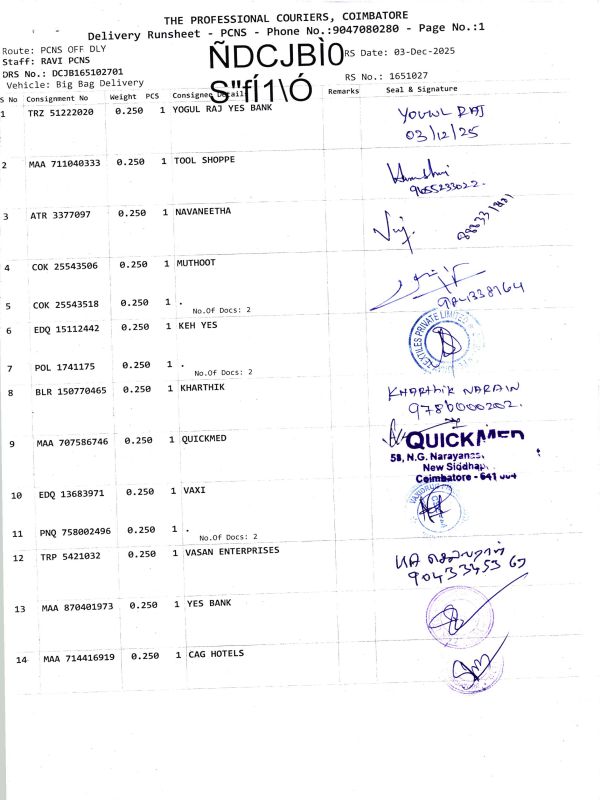 THE PROFESSIONAL COURIERS, COIMBATORE
Delivery Runsheet - PCNS - Phone No.:9047080280 - Page No.:1
Route: PCNS OFF DLY
ÑDCJBÌ0
RS Date: 03-Dec-2025
Staff: RAVI PCNS
DRS No.: DCJB165102701
S"fÍ1\Ó
RS No.: 1651027
Vehicle: Big Bag Delivery
S No Consignment No Weight PCS Consignee Details Remarks Seal & Signature
1 TRZ 51222020 0.250 1 YOGUL RAJ YES BANK
03/12/25
2 MAA 711040333 0.250 1 TOOL SHOPPE
9655233022.
3 ATR 3377097 0.250 1 NAVANEETHA
4 COK 25543506 0.250 1 MUTHOOT
5 COK 25543518 0.250 1 .
No.Of Docs: 2
6 EDQ 15112442 0.250 1 KEH YES
TEXTILES PRIVATE LIMITED
7 POL 1741175 0.250 1 .
No.Of Docs: 2
8 BLR 150770465 0.250 1 KHARTHIK
KHARTHIK NARAIN
9786000202.
9 MAA 707586746 0.250 1 QUICKMED
QUICKMED
58, N.G. Narayanas
New Siddhap
Coimbatore - 641 004
10 EDQ 13683971 0.250 1 VAXI
11 PNQ 758002496 0.250 1 .
No.Of Docs: 2
12 TRP 5421032 0.250 1 VASAN ENTERPRISES
13 MAA 870401973 0.250 1 YES BANK
14 MAA 714416919 0.250 1 CAG HOTELS